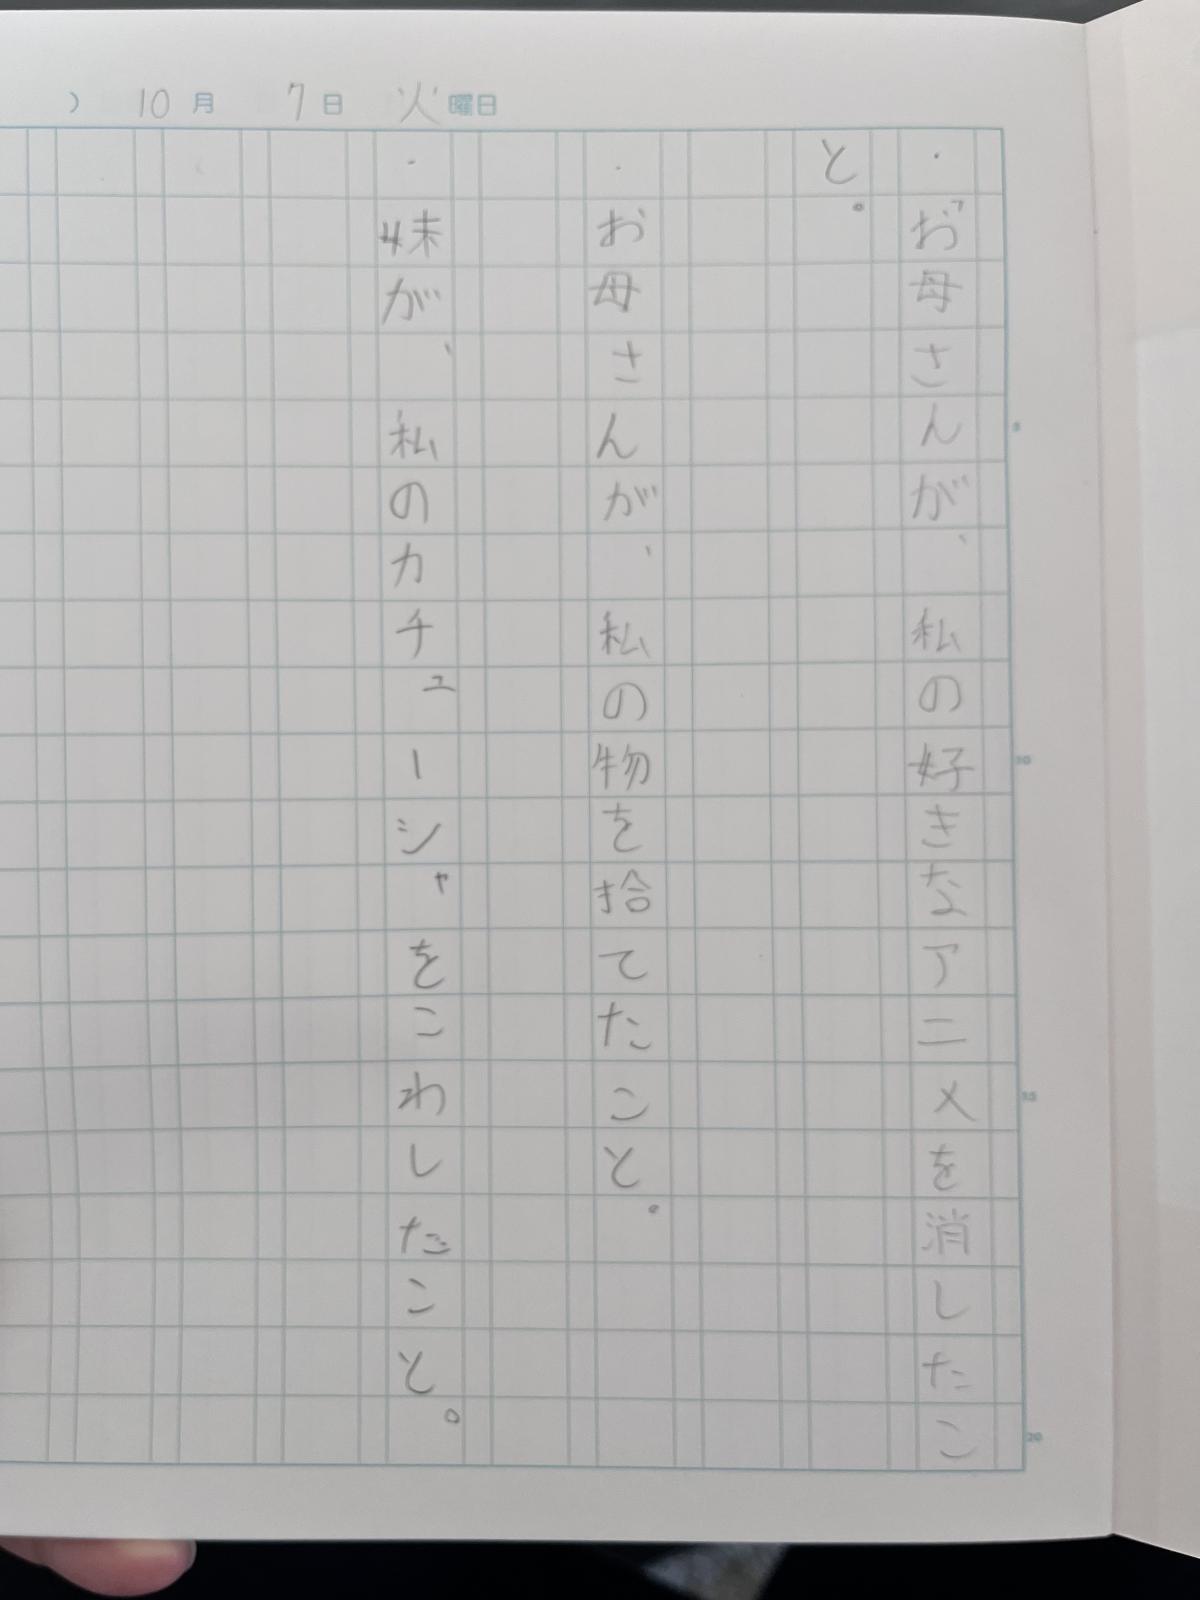 ) 10月 7日 火曜日
・お母さんが、私の好きなアニメを消したこ
と。
・お母さんが、私の物を拾てたこと。
・妹が、私のカチューシャをこわしたこと。
5
10
15
20